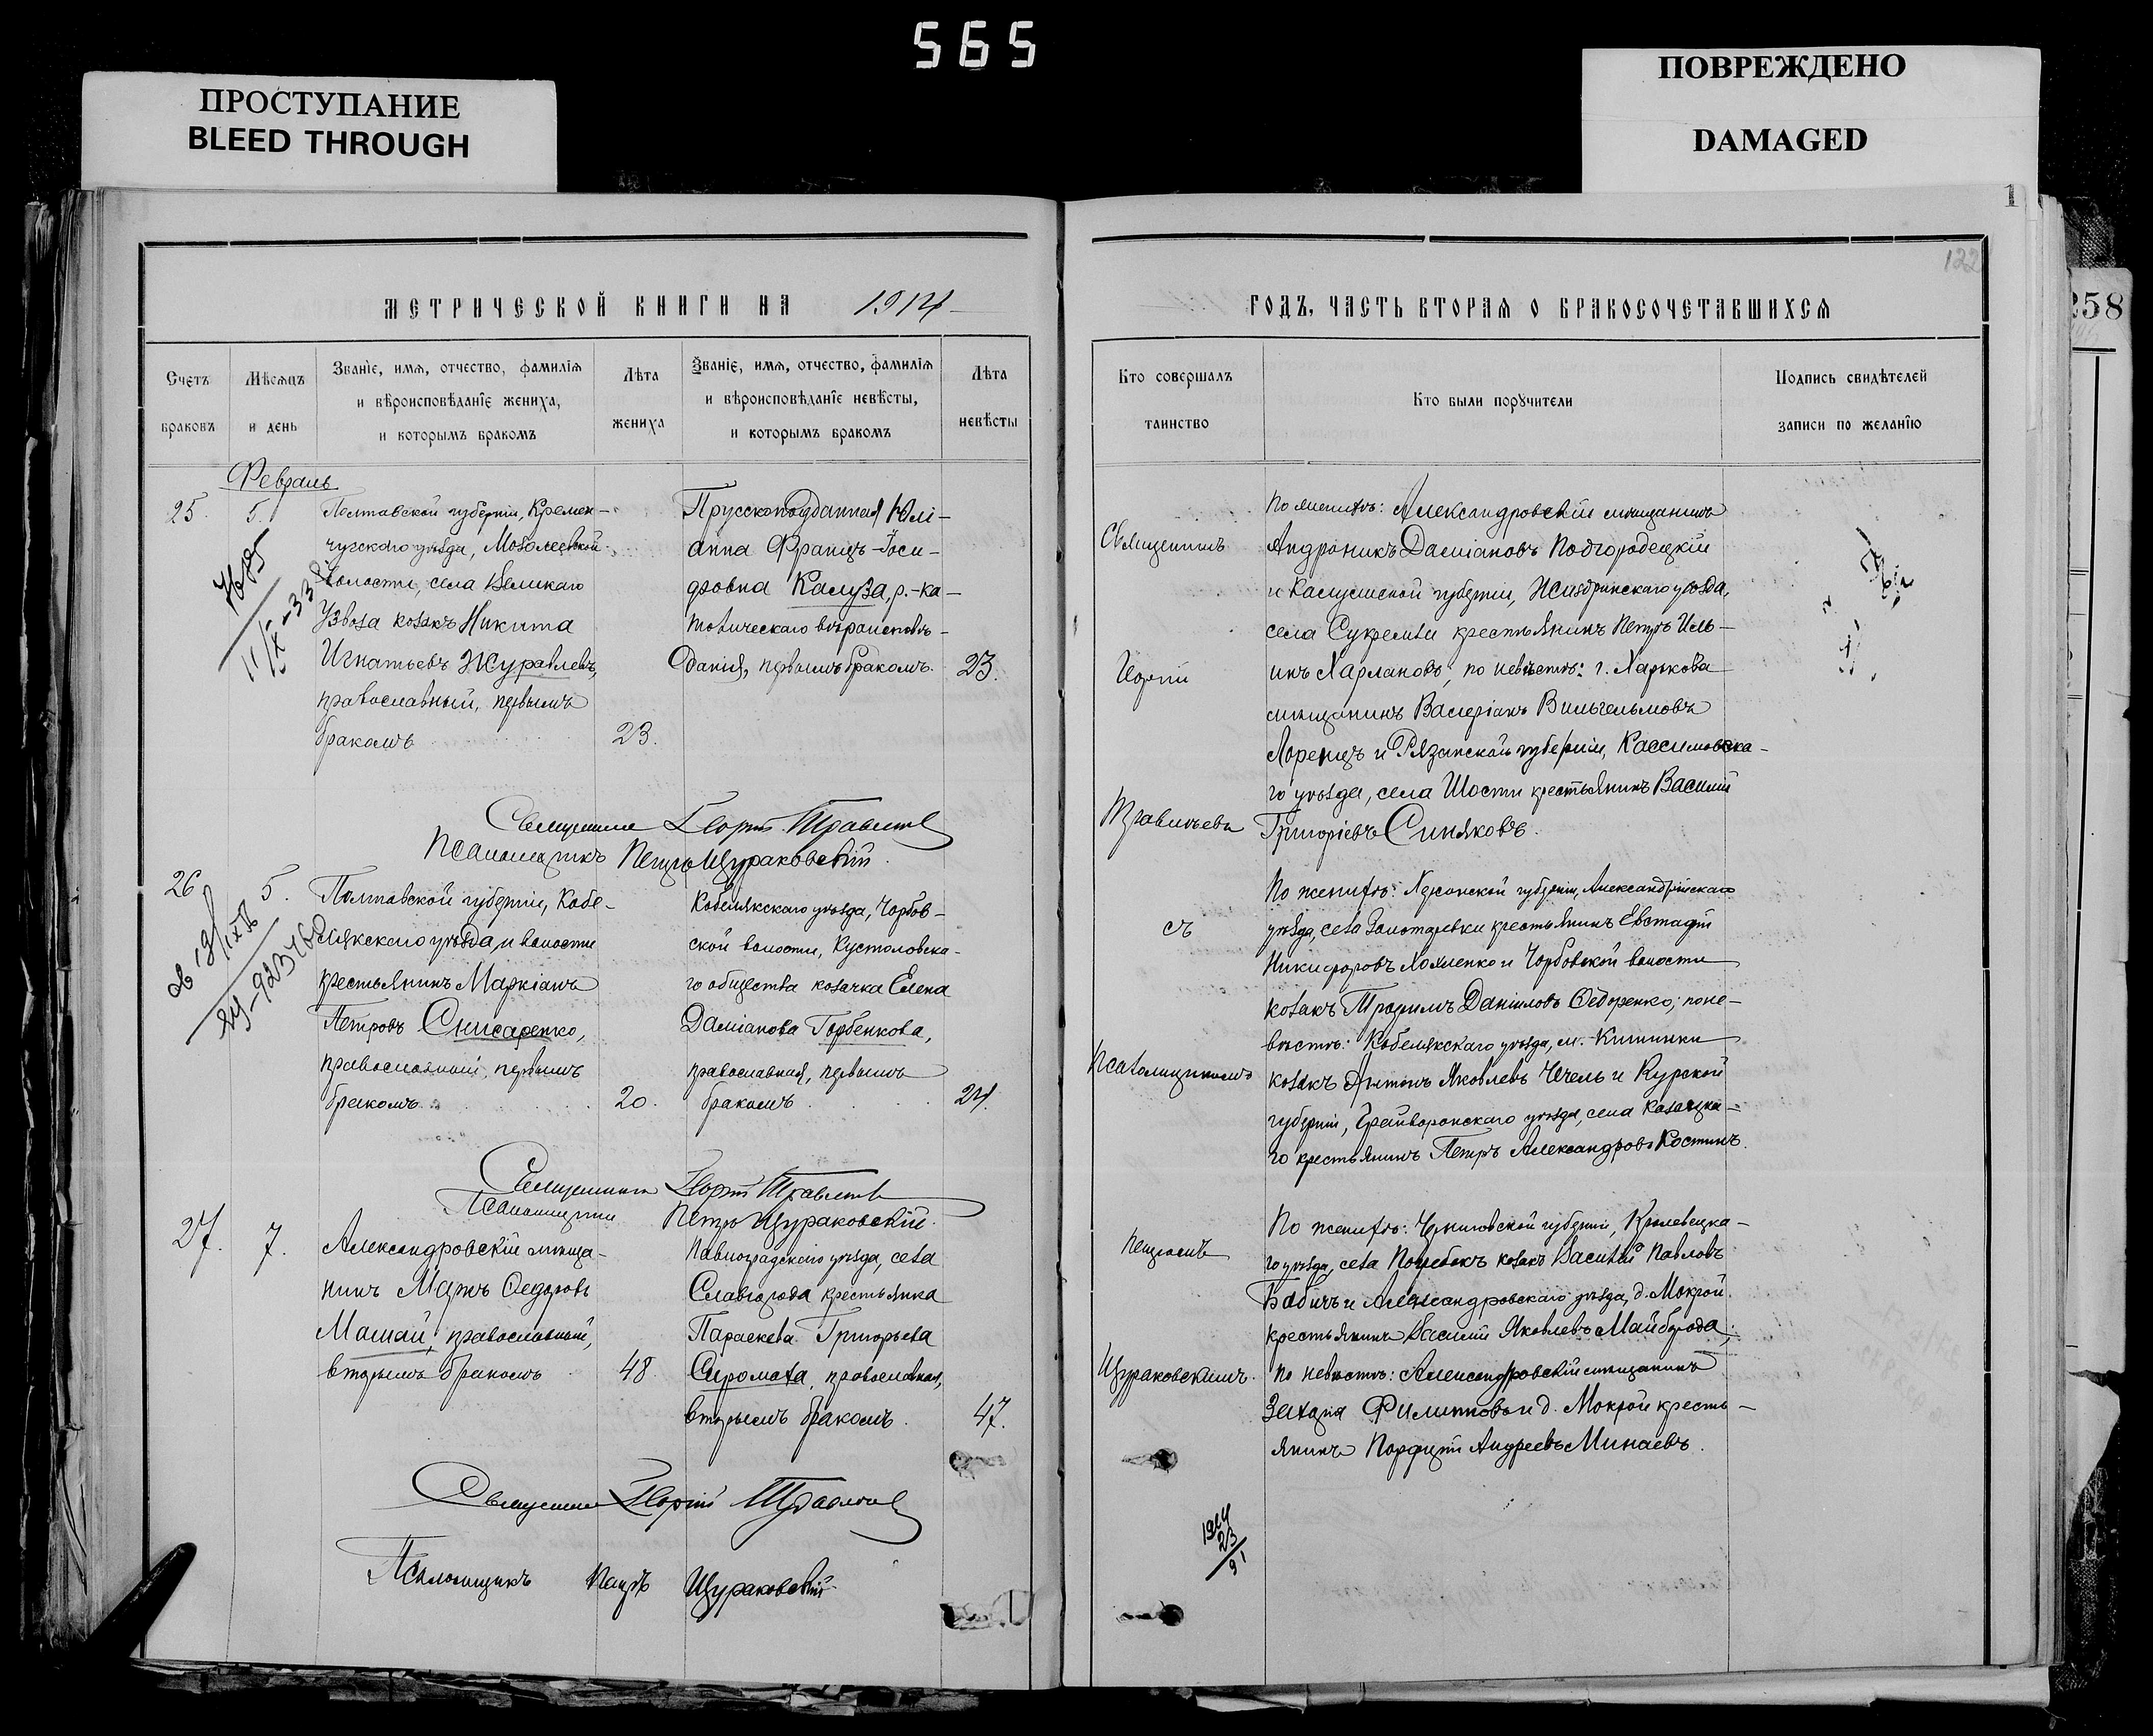 565
ПРОСТУПАНИЕ
BLEED THROUGH
ПОВРЕЖДЕНО
DAMAGED
1
122
258
МЕТРИЧЕСКОЙ КНИГИ НА 1914
Счетъ браковъ
Мѣсяцъ и день
Званіе, имя, отчество, фамилія
и вѣроисповѣданіе жениха,
и которымъ бракомъ
Лѣта жениха
Званіе, имя, отчество, фамилія
и вѣроисповѣданіе невѣсты,
и которымъ бракомъ
Лѣта невѣсты
Февраль
25. 5.
Полтавской губерніи, Кремен-
чугскаго уѣзда,
волости, села Великаго
Узвоза козакъ Никита
Игнатьевъ Журавлевъ,
православный, первымъ
бракомъ
23.
Прусскоподданная Юлі-
анна Францъ-Іоси-
фовна Калуза, р.-ка-
толическаго вѣроисповѣ-
данія, первымъ бракомъ.
23.
Священникъ Георгій
Псаломщикъ Петръ Щураковскій.
26 5.
Полтавской губерніи, Кобе-
лякскаго уѣзда, и волости
крестьянинъ Маркіанъ
Петровъ Снисаренко,
православный, первымъ
бракомъ
20.
Кобелякскаго уѣзда, Чорбов-
ской волости, Кустоловска-
го общества козачка Елена
Даміанова Горбенкова,
православная, первымъ
бракомъ
24.
Священникъ Георгій
Псаломщикъ Петръ Щураковскій.
27. 7.
Александровскій мѣща-
нинъ Маркъ Ѳедоровъ
Мамай, православный,
вторымъ бракомъ
48.
Павлоградскаго уѣзда, села
Славгорода крестьянка
Параскева Григорьева
Сиромаха, православная,
вторымъ бракомъ.
47.
Священникъ Георгій
Псаломщикъ Петръ Щураковскій
ГОДЪ, ЧАСТЬ ВТОРАЯ О БРАКОСОЧЕТАВШИХСЯ
Кто совершалъ
таинство
Кто были поручители
Подпись свидѣтелей
записи по желанію
Священникъ
Георгій
съ
Псаломщикомъ
Петромъ
Щураковскимъ.
По женихѣ: Александровскій мѣщанинъ
Андроникъ Даміановъ Подгородецкій
и Калужской губерніи, Жиздринскаго уѣзда,
села Сукремли крестьянинъ Петръ Иль-
инъ Харламовъ; по невѣстѣ: г. Харькова
мѣщанинъ Валеріанъ Вильгельмовъ
Лоренцъ и Рязанской губерніи, Кассимовска-
го уѣзда, села Шости крестьянинъ Василій
Григоріевъ Синяковъ.
По женихѣ: Херсонской губерніи, Александрійскаго
уѣзда, села Золотаревки крестьянинъ Евстафій
Никифоровъ Хохленко и Чорбовской волости
козакъ Трофимъ Даніиловъ Ѳедоренко; по не-
вѣстѣ: Кобелякскаго уѣзда, м. Китинки
козакъ Антонъ Яковлевъ Чечель и Курской
губерніи, Грайворонскаго уѣзда, села Казацка-
го крестьянинъ Петръ Александровъ Костинъ.
По женихѣ: Черниговской губерніи, Кролевецка-
го уѣзда, села Погребокъ козакъ Василій Павловъ
Бабичъ и Александровскаго уѣзда, д. Мокрой
крестьянинъ Василій Яковлевъ Майборода;
по невѣстѣ: Александровскій мѣщанинъ
Захарія Филипповъ и д. Мокрой кресть-
янинъ Порфирій Андреевъ Минаевъ.